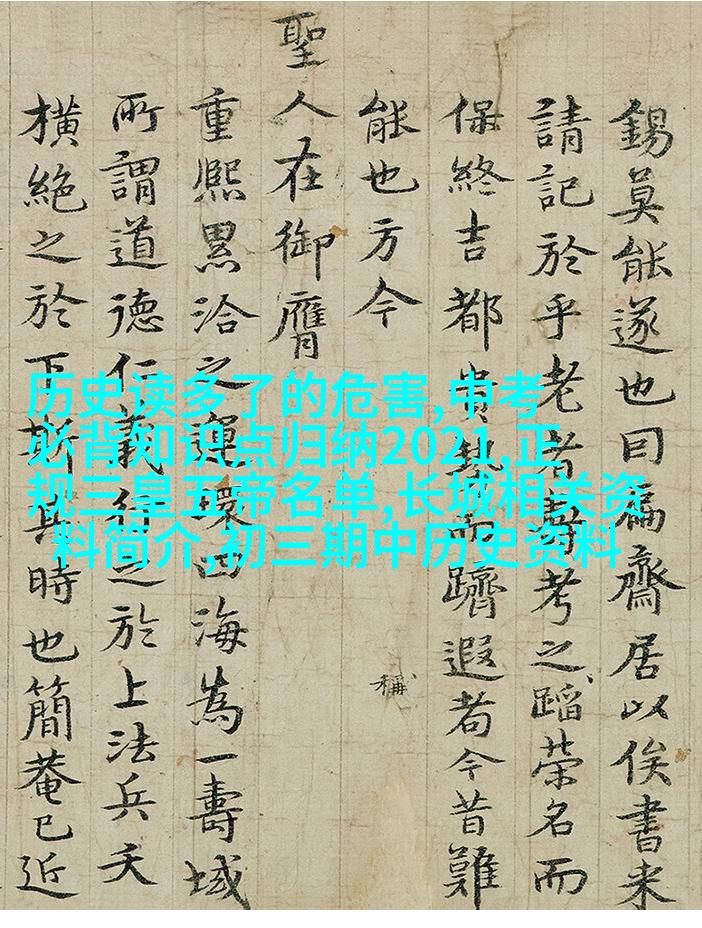 錫莫能遂也曰扁齋居以俟書来
請記於乎老者壽考之蹈榮名而
保終吉都貴埶而躋遐耇今昔難
能也方今
稱
聖人在御膺
重熙累洽之運環四海為一壽域
所謂道德仁義行之於上法兵夭
橫絶之於下斯其時也簡菴已近
历史读多了的危害,中考
必背知识点归纳2021,正
规三皇五帝名单,长城相关资
料简介,初三期中历史资料